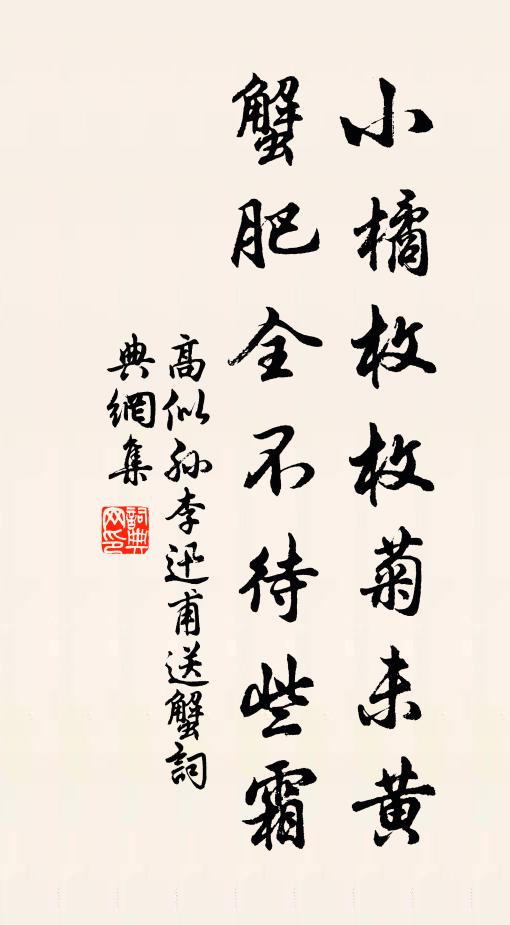 小橘枚枚菊未黄
蟹肥全不待些霜
高似孙李迅甫送蟹詞
典網集
詞典网印